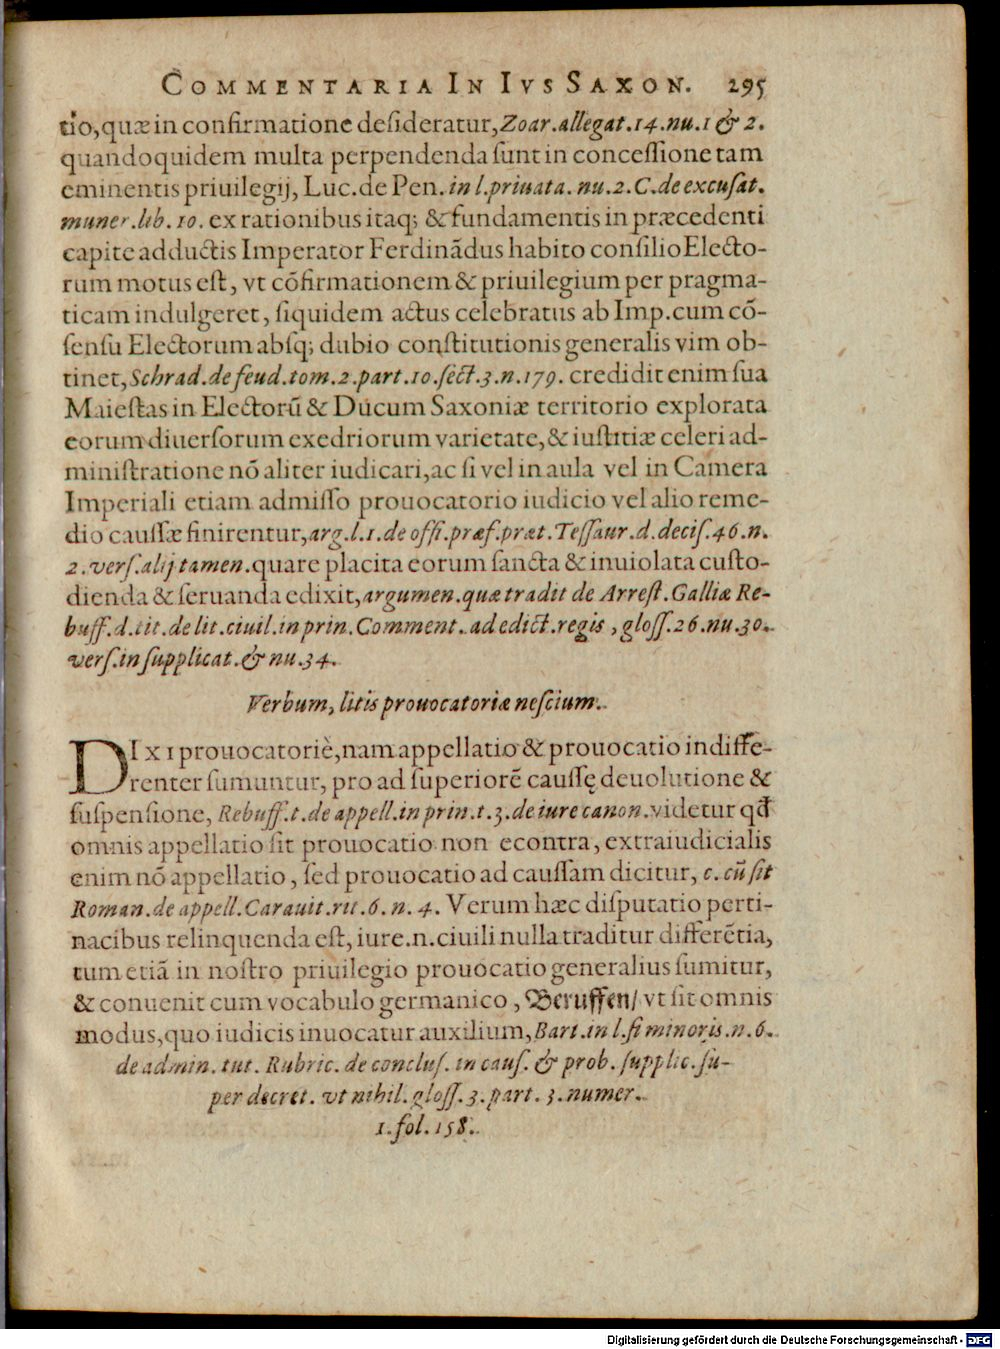 COMMENTARIA IN IVS SAXON. 295
tio, quæ in confirmatione desideratur, Zoar. allegat. 14. nu. 1 & 2.
quandoquidem multa perpendenda sunt in concessione tam
eminentis priuilegij, Luc. de Pen. in l. priuata. nu. 2. C. de excusat.
muner. lib. 10. ex rationibus itaq; & fundamentis in præcedenti
capite adductis Imperator Ferdinādus habito consilio Electo-
rum motus est, vt cōfirmationem & priuilegium per pragma-
ticam indulgeret, siquidem actus celebratus ab Imp. cum cō-
sensu Electorum absq; dubio constitutionis generalis vim ob-
tinet, Schrad. de feud. tom. 2. part. 10. sect. 3. n. 179. credidit enim sua
Maiestas in Electorū & Ducum Saxoniæ territorio explorata
eorum diuersorum exedriorum varietate, & iustitiæ celeri ad-
ministratione nō aliter iudicari, ac si vel in aula vel in Camera
Imperiali etiam admisso prouocatorio iudicio vel alio reme-
dio caussæ finirentur, arg. l. 1. de offi. præf. præt. Tessaur. d. decis. 46. n.
2. vers. alij tamen. quare placita eorum sancta & inuiolata custo-
dienda & seruanda edixit, argumen. quæ tradit de Arrest. Galliæ Re-
buff. d. tit. de lit. ciuil. in prin. Comment. ad edict. regis, gloss. 26. nu. 30.
vers. in supplicat. & nu. 34.
Verbum, litis prouocatoriæ nescium.
DIXI prouocatoriè, nam appellatio & prouocatio indiffe-
renter sumuntur, pro ad superiorē caussę deuolutione &
suspensione, Rebuff. t. de appell. in prin. t. 3. de iure canon. videtur qđ
omnis appellatio sit prouocatio non econtra, extraiudicialis
enim nō appellatio, sed prouocatio ad caussam dicitur, c. cū sit
Roman. de appell. Carauit. rit. 6. n. 4. Verum hæc disputatio perti-
nacibus relinquenda est, iure. n. ciuili nulla traditur differētia,
tum etiā in nostro priuilegio prouocatio generalius sumitur,
& conuenit cum vocabulo germanico, Beruffen/ vt sit omnis
modus, quo iudicis inuocatur auxilium, Bart. in l. si minoris. n. 6.
de admin. tut. Rubric. de conclus. in caus. & prob. supplic. su-
per decret. vt nihil. gloss. 3. part. 3. numer.
1. fol. 158.
Digitalisierung gefördert durch die Deutsche Forschungsgemeinschaft - DFG